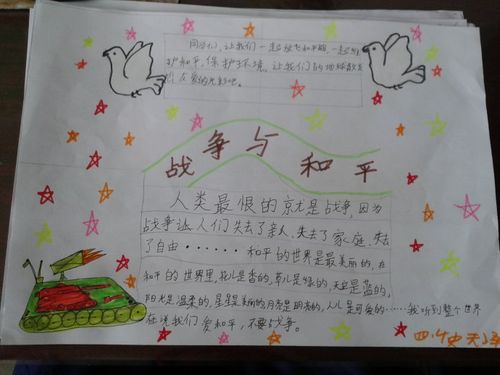 同学们,让我们一起放飞和平鸽,一起呵
护和平,保护环境,让我们的地球散发
出友爱的光彩吧。
战争与和平
人类最恨的就是战争,因为
战争让人们失去了亲人、失去了家庭、失去
了自由······和平的世界是最美丽的,在
和平的世界里,花儿是香的,草儿是绿的,天空是蓝的,
阳光是温柔的,星星是美丽的,月亮是明亮的,人儿是可爱的······我听到整个世界
在说我们爱和平,不要战争。
四、4史天